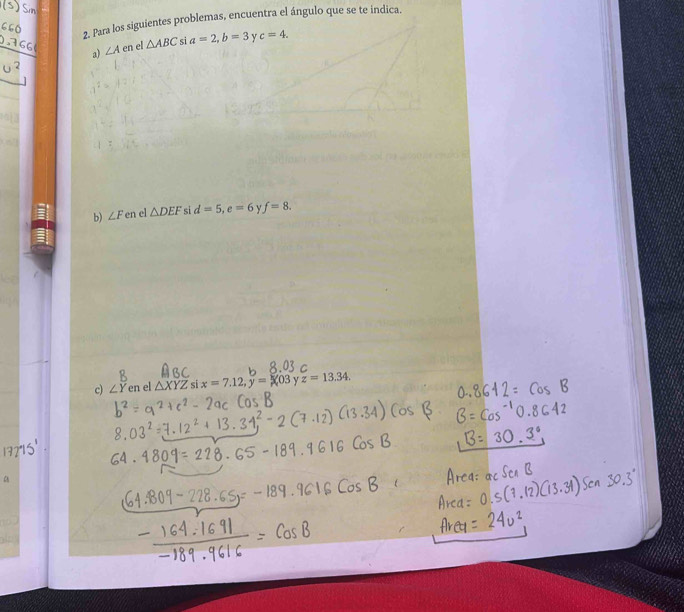 (s) Sm
660
0.766
U²
2. Para los siguientes problemas, encuentra el ángulo que se te indica.
a) ∠A en el △ABC si a = 2, b = 3 y c = 4.
b) ∠F en el △DEF si d = 5, e = 6 y f = 8.
B ABC b 8.03 c
c) ∠Y en el △XYZ si x = 7.12, y = 03 y z = 13.34.
b² = a² + c² - 2ac Cos B
8.03² = 7.12² + 13.34² - 2 (7.12) (13.34) Cos B
64.4809 = 228.65 - 189.9616 Cos B
(64.809 - 228.65) = -189.9616 Cos B
-164.1691 / -189.9616 = Cos B
0.8642 = Cos B
B = Cos⁻¹ 0.8642
B = 30.3°
Area: ac Sen B
Area = 0.5 (7.12)(13.34) Sen 30.3°
Area = 24u²
17715'
a